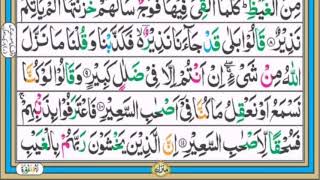 مِنَ الْغَيْظِ ؕ كُلَّمَاۤ اُلْقِیَ فِیْهَا فَوْجٌ سَاَلَهُمْ خَزَنَتُهَاۤ اَلَمْ یَاْتِكُمْ
نَذِیْرٌ ۝ قَالُوْا بَلٰی قَدْ جَآءَنَا نَذِیْرٌ ۙ۬ فَكَذَّبْنَا وَ قُلْنَا مَا نَزَّلَ
اللّٰهُ مِنْ شَیْءٍ ۚۖ اِنْ اَنْتُمْ اِلَّا فِیْ ضَلٰلٍ كَبِیْرٍ ۝ وَ قَالُوْا لَوْ كُنَّا
نَسْمَعُ اَوْ نَعْقِلُ مَا كُنَّا فِیْۤ اَصْحٰبِ السَّعِیْرِ ۝ فَاعْتَرَفُوْا بِذَنْۢبِهِمْ ۚ
فَسُحْقًا لِّاَصْحٰبِ السَّعِیْرِ ۝ اِنَّ الَّذِیْنَ یَخْشَوْنَ رَبَّهُمْ بِالْغَیْبِ